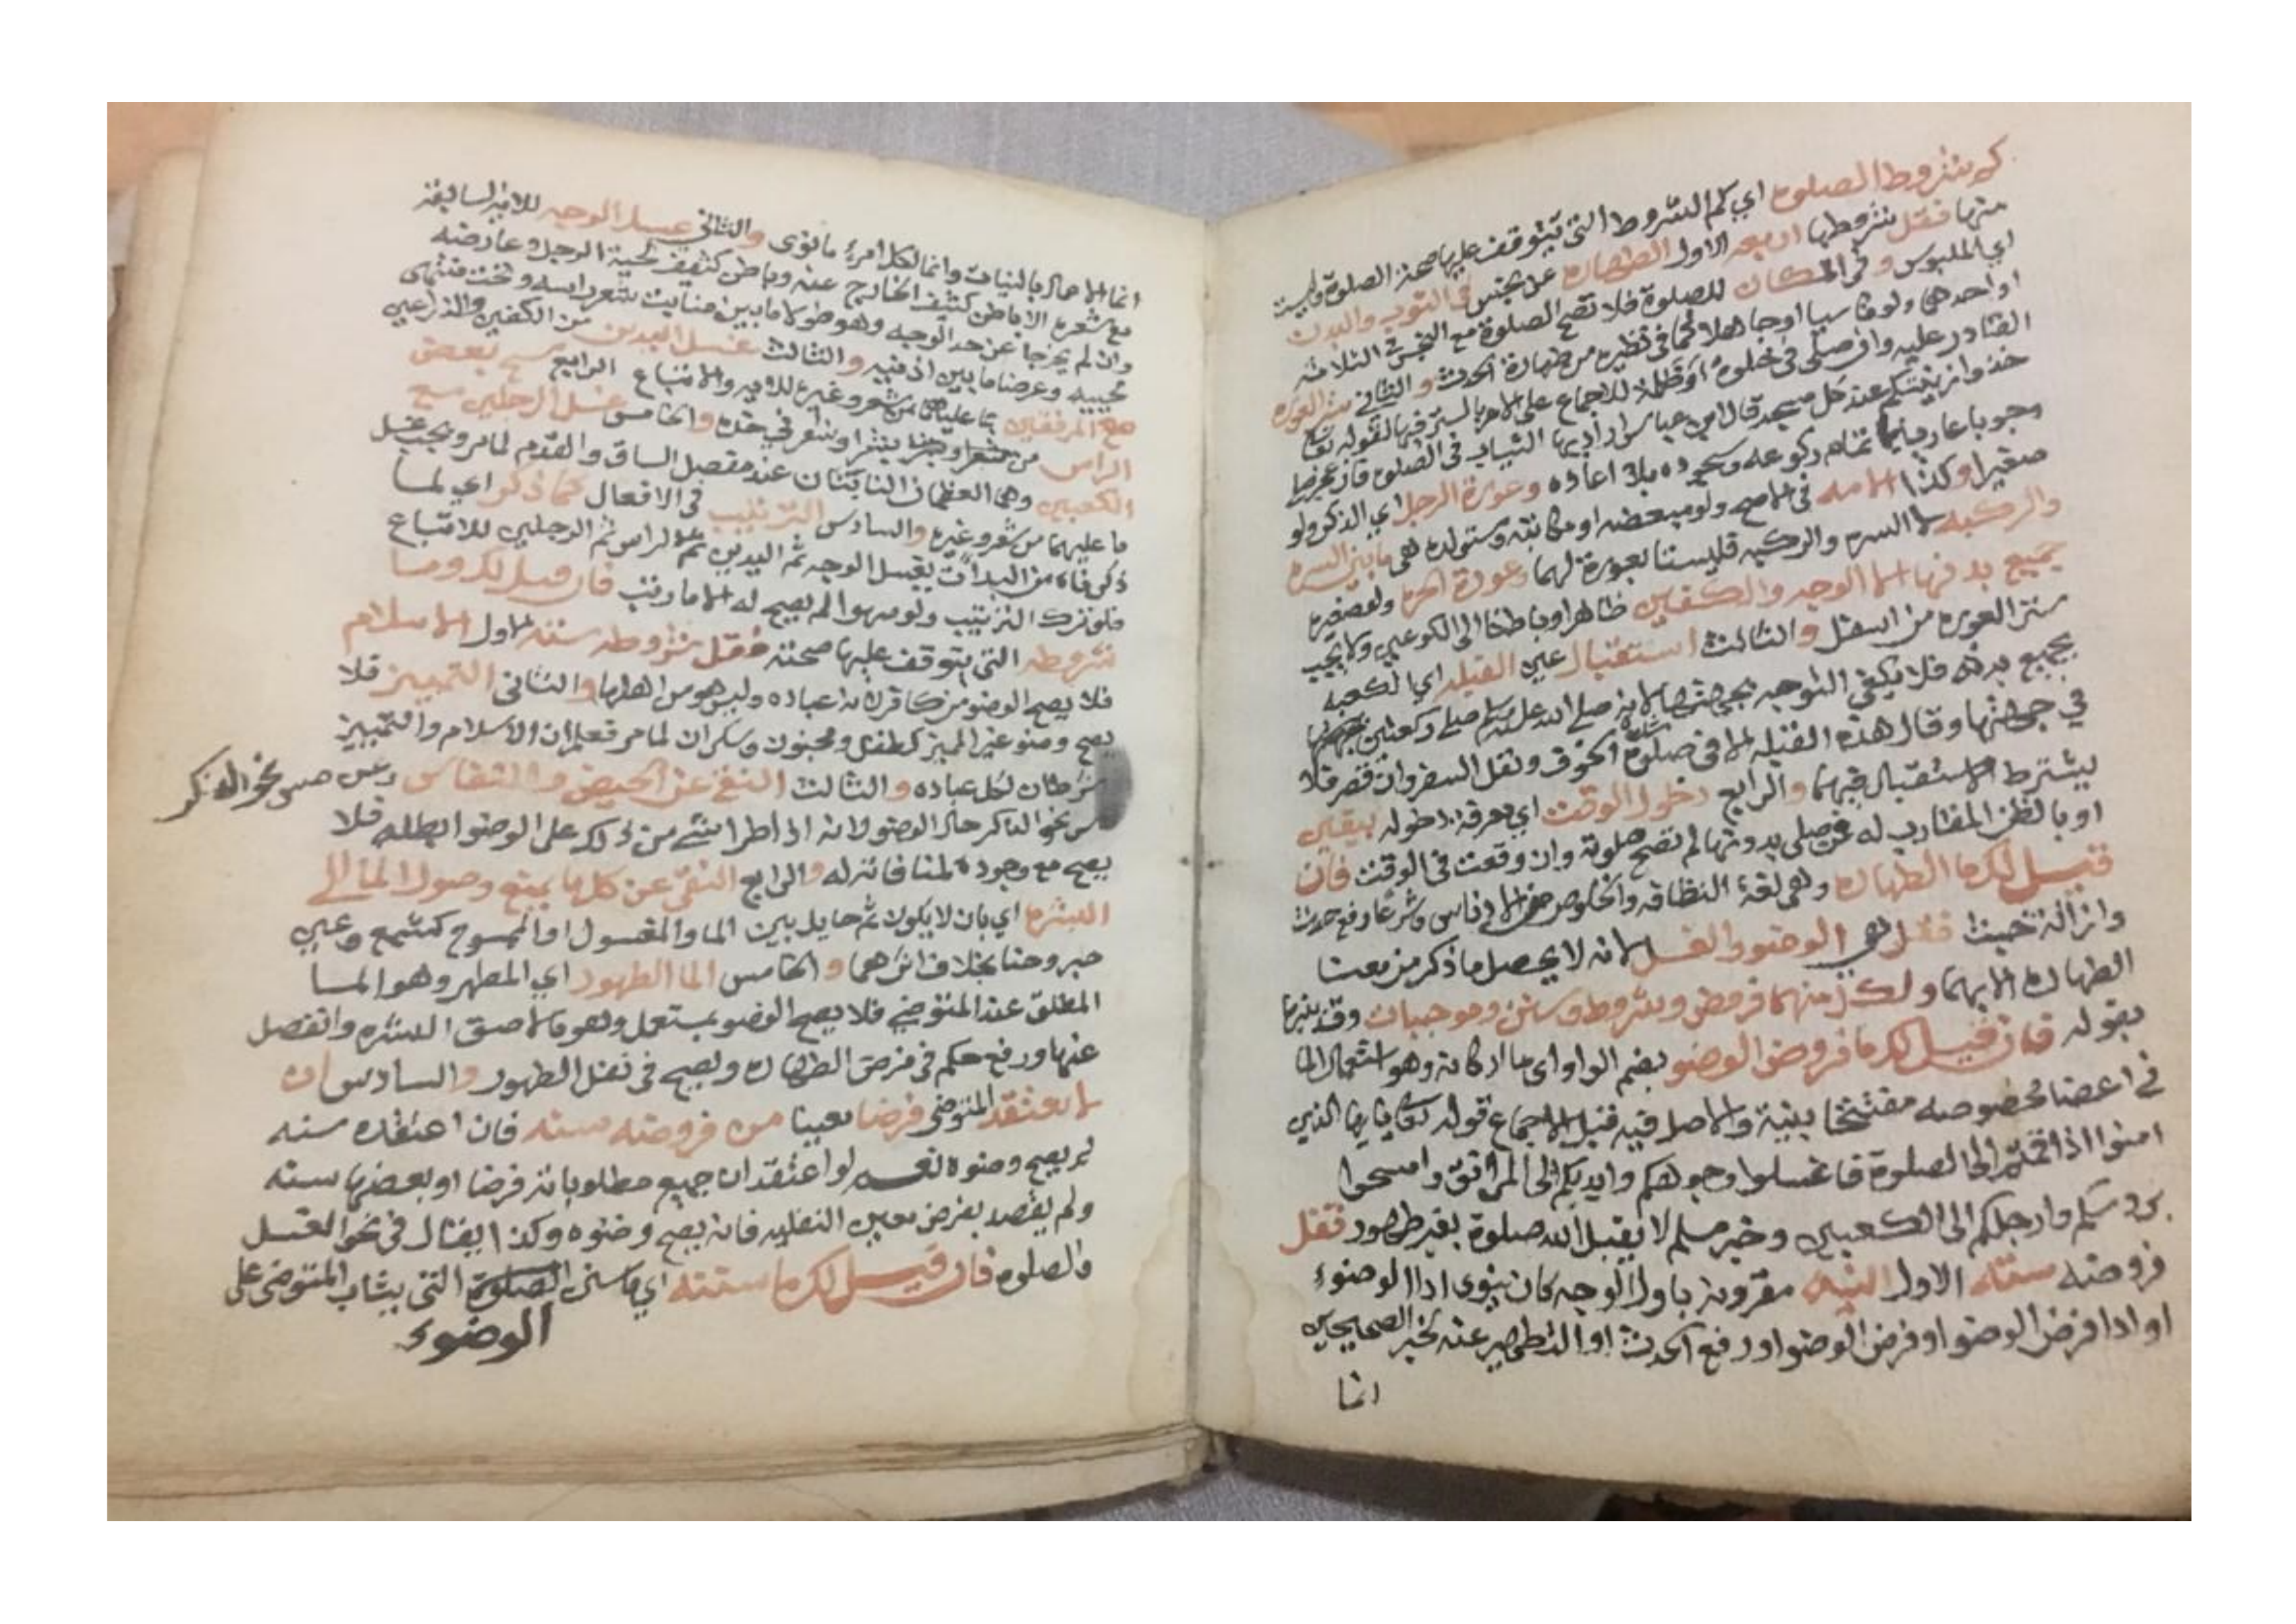 كم شروط الصلوة اي كم الشروط التي تتوقف عليها صحة الصلوة وليست
منها فقل شروطها اربعه الاول الطهاره عن نجس في الثوب والبدن
اي الملبوس وفي المكان للصلوة فلا تصح الصلوة مع النجس في الثلاثه
او احدهي ولو ناسيا او جاهلا كما في نظيره من طهارة الحدث و الثاني ستر العوره
القادر عليه وان صلى في خلوة او ظلمة للاجماع على الامر بالستر فيها لقوله تعا
خذوا زينتكم عند كل مسجد قال ابن عباس اراد بها الثياب في الصلوة فان عجز صلى
وجوبا عاريا تمام ركوعه وسجوده بلا اعاده وعورة الرجل اي الذكر ولو
صغيرا وكذا الامه في الاصح ولو مبعضه او مكاتبه ومستولده هي ما بين السره
والركبه لا السره والركبه فليستا بعورة لهما وعورة الحره ولو صغيره
جميع بدنها الا الوجه والكفين ظاهرا وباطنا الى الكوعين ولا يجب
ستر العوره من اسفل والثالث استقبال عين القبله اي الكعبه
بجميع بدنه فلا يكفي التوجه بجهتها لانه صلى الله عليه وسلم صلى ركعتين
في جهتها وقال هذه القبله الا في صلوة شدة الخوف ونفل السفر وان قصر فلا
يشترط الاستقبال فيهما والرابع دخول الوقت اي معرفة دخوله بيقين
او بالظن المقارب له فمن صلى بدونها لم تصح صلوته وان وقعت في الوقت فان
قيل لك ما الطهاره وهي لغة النظافه والخلوص من الادناس وشرعا رفع حدث
وازالة خبث فقل هي الوضو والغسل لانه لا يحصل ما ذكر من معنا
الطهاره الا بهما ولكل منهما فروض وشروط وسنن وموجبات وقد بينها
بقوله فان قيل لك ما فروض الوضو بضم الواو اي ما اركانه وهو استعمال الما
في اعضا مخصوصه مفتتحا بنية والاصل فيه قبل الاجماع قوله تعا يا ايها الذين
امنوا اذا قمتم الى الصلوة فاغسلوا وجوهكم وايديكم الى المرافق وامسحوا
بروسكم وارجلكم الى الكعبين وخبر مسلم لا يقبل الله صلوة بغير طهور فقل
فروضه سته الاول النيه مقرونه باول الوجه كان ينوى ادا الوضوء
او ادا فرض الوضو او فرض الوضو او رفع الحدث او التطهير عنه لخبر الصحيحين
انما
انما الاعمال بالنيات وانما لكل امرئ ما نوى والثاني غسل الوجه للايه السابقه
مع شعره الا باطن كثيف الخارج عنه وباطن كثيف لحية الرجل وعارضه
وان لم يخرجا عن حد الوجه وهو طولا ما بين منابت شعر راسه وتحت منتهى
لحييه وعرضا ما بين اذنيه والثالث غسل اليدين من الكفين والذراعين
مع المرفقين بما عليها من شعر وغيره للايه والاتباع الرابع مسح بعض
الراس من بشرا وشعر في حده والخامس غسل الرجلين مع
الكعبين وهما العظمان الناتئان عند مفصل الساق والقدم لما مر ويجب غسل
ما عليهما من شعر وغيره والسادس الترتيب في الافعال كما ذكر اي لما
ذكرناه من البداءت بغسل الوجه ثم اليدين ثم الراس ثم الرجلين للاتباع
فلو ترك الترتيب ولو سهوا لم يصح له الا ما رتب فان قيل لك وما
شروطه التي يتوقف عليها صحته فقل شروطه سته الاول الاسلام
فلا يصح الوضو من كافر لانه عباده وليس هو من اهلها والثاني التمييز فلا
يصح وضو غير المميز كطفل ومجنون وسكران لما مر فعلم ان الاسلام والتمييز
شرطان لكل عباده والثالث النقي عن الحيض والنفاس وعن مس نحو الذكر
مس نحو الذكر حال الوضو لانه اذا طرا شي من ذلك على الوضو ابطله فلا
يصح مع وجوده لمنافاته له والرابع النقي عن كل ما يمنع وصول الما الى
البشره اي بان لا يكون ثم حايل بين الما والمغسول او الممسوح كشمع وعين
حبر وحنا بخلاف اثرهما و الخامس الما الطهور اي المطهر وهو الما
المطلق عند المتوضي فلا يصح الوضو بمستعمل وهو ما لاصق البشره وانفصل
عنها ورفع حكم في فرض الطهاره ويصح في نفل الطهور والسادس ان
لا يعتقد المتوضي فرضا معينا من فروضه سنه فان اعتقده سنه
لم يصح وضوه نعم لو اعتقد ان جميع مطلوباته فرضا او بعضها سنه
ولم يقصد بفرض معين النفليه فانه يصح وضوه وكذا يقال في نحو الغسل
والصلوه فان قيل لك ما سنته اي ما سنن الصلوة التي يثاب المتوضي على
الوضوء